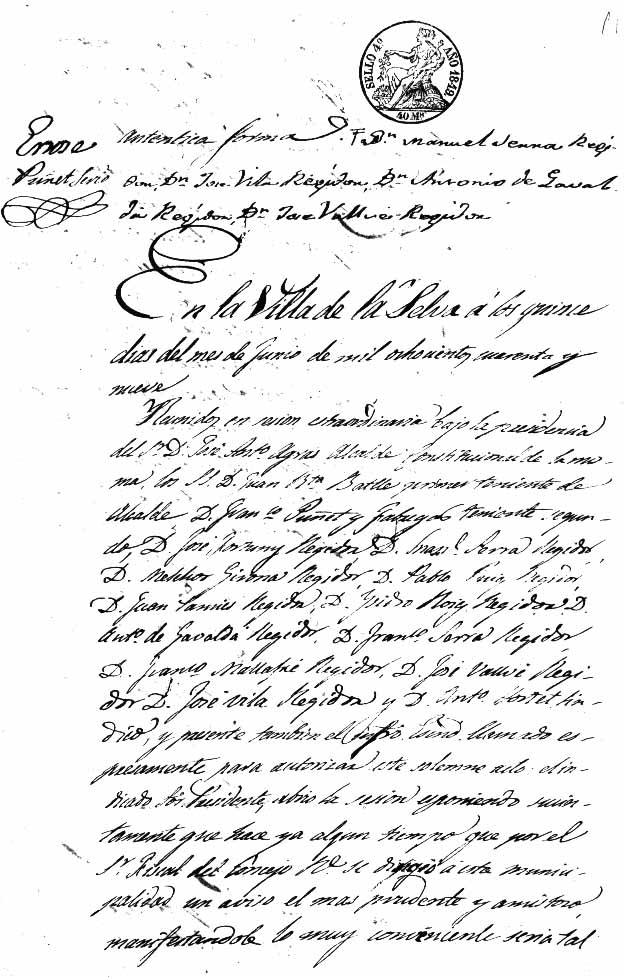 SELLO 4º AÑO 1849
40 Ms
autentica forma D. Dn Manuel Serra Regi-
dor, Dn Jose Vila Regidor, Dn Antonio de Gaval-
dá Regidor, Dn Jose Vallvé Regidor
En la Villa de la Selva á los quince
dias del mes de Junio de mil ochocientos cuarenta y
nueve
Reunidos en sesion estraordinaria bajo la presidencia
del Sr D. José Anto Agras Alcalde Constitucional de la mis-
ma, los SS. D. Juan Bta Batlle primer teniente de
Alcalde D. Franco Puñet y teniente segun-
do, D. José Regidor D. Serra Regidor,
D. Melchor Girona Regidor, D. Pablo Puig Regidor
D. Juan Regidor, D. Ysidro Roig Regidor D.
Anto de Gavaldá Regidor, D. Franco Serra Regidor
D. Franco Mallafré Regidor, D. José Vallvé Regi-
dor D. José Vila Regidor y D. Anto Sin-
dico, y presente tambien el infro Escno llamado es-
presamente para autorizar este solemne acto el in-
dicado Sor Presidente, abrio la sesion esponiendo sucin-
tamente que hace ya algun tiempo que por el
Sr Fiscal del Consejo Rl se dirigió á esta munici-
palidad un aviso el mas prudente y amistoso
manifestandole lo muy conveniente seria tal